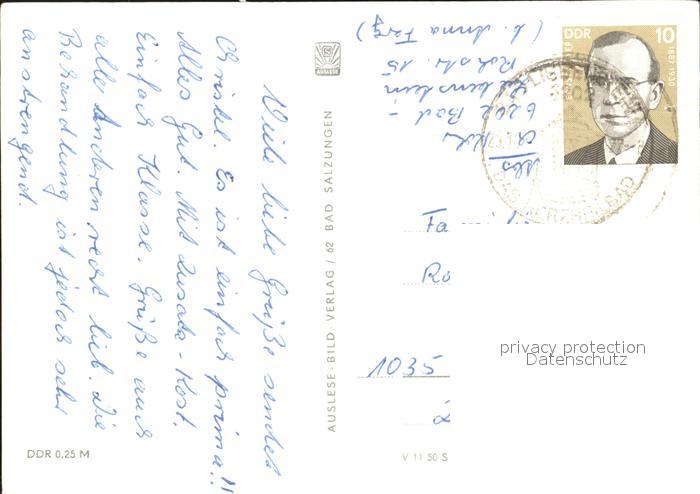 Viele liebe Grüße sendet
Christel. Es ist einfach prima!!
Alles Gut. Mit Zusatz-Kost.
Einfach Klasse. Grüße auch
alle Anderen recht lieb. Die
Behandlung ist jedoch sehr
anstrengend.
DDR 0,25 M
AUSLESE
AUSLESE-BILD VERLAG / 62 BAD SALZUNGEN
V 11 50 S
Abs
6202 Bad-
Liebenstein
Ruhstr. 15
(b. Anna
DDR 10
Fa
Ro
1035
privacy protection
Datenschutz